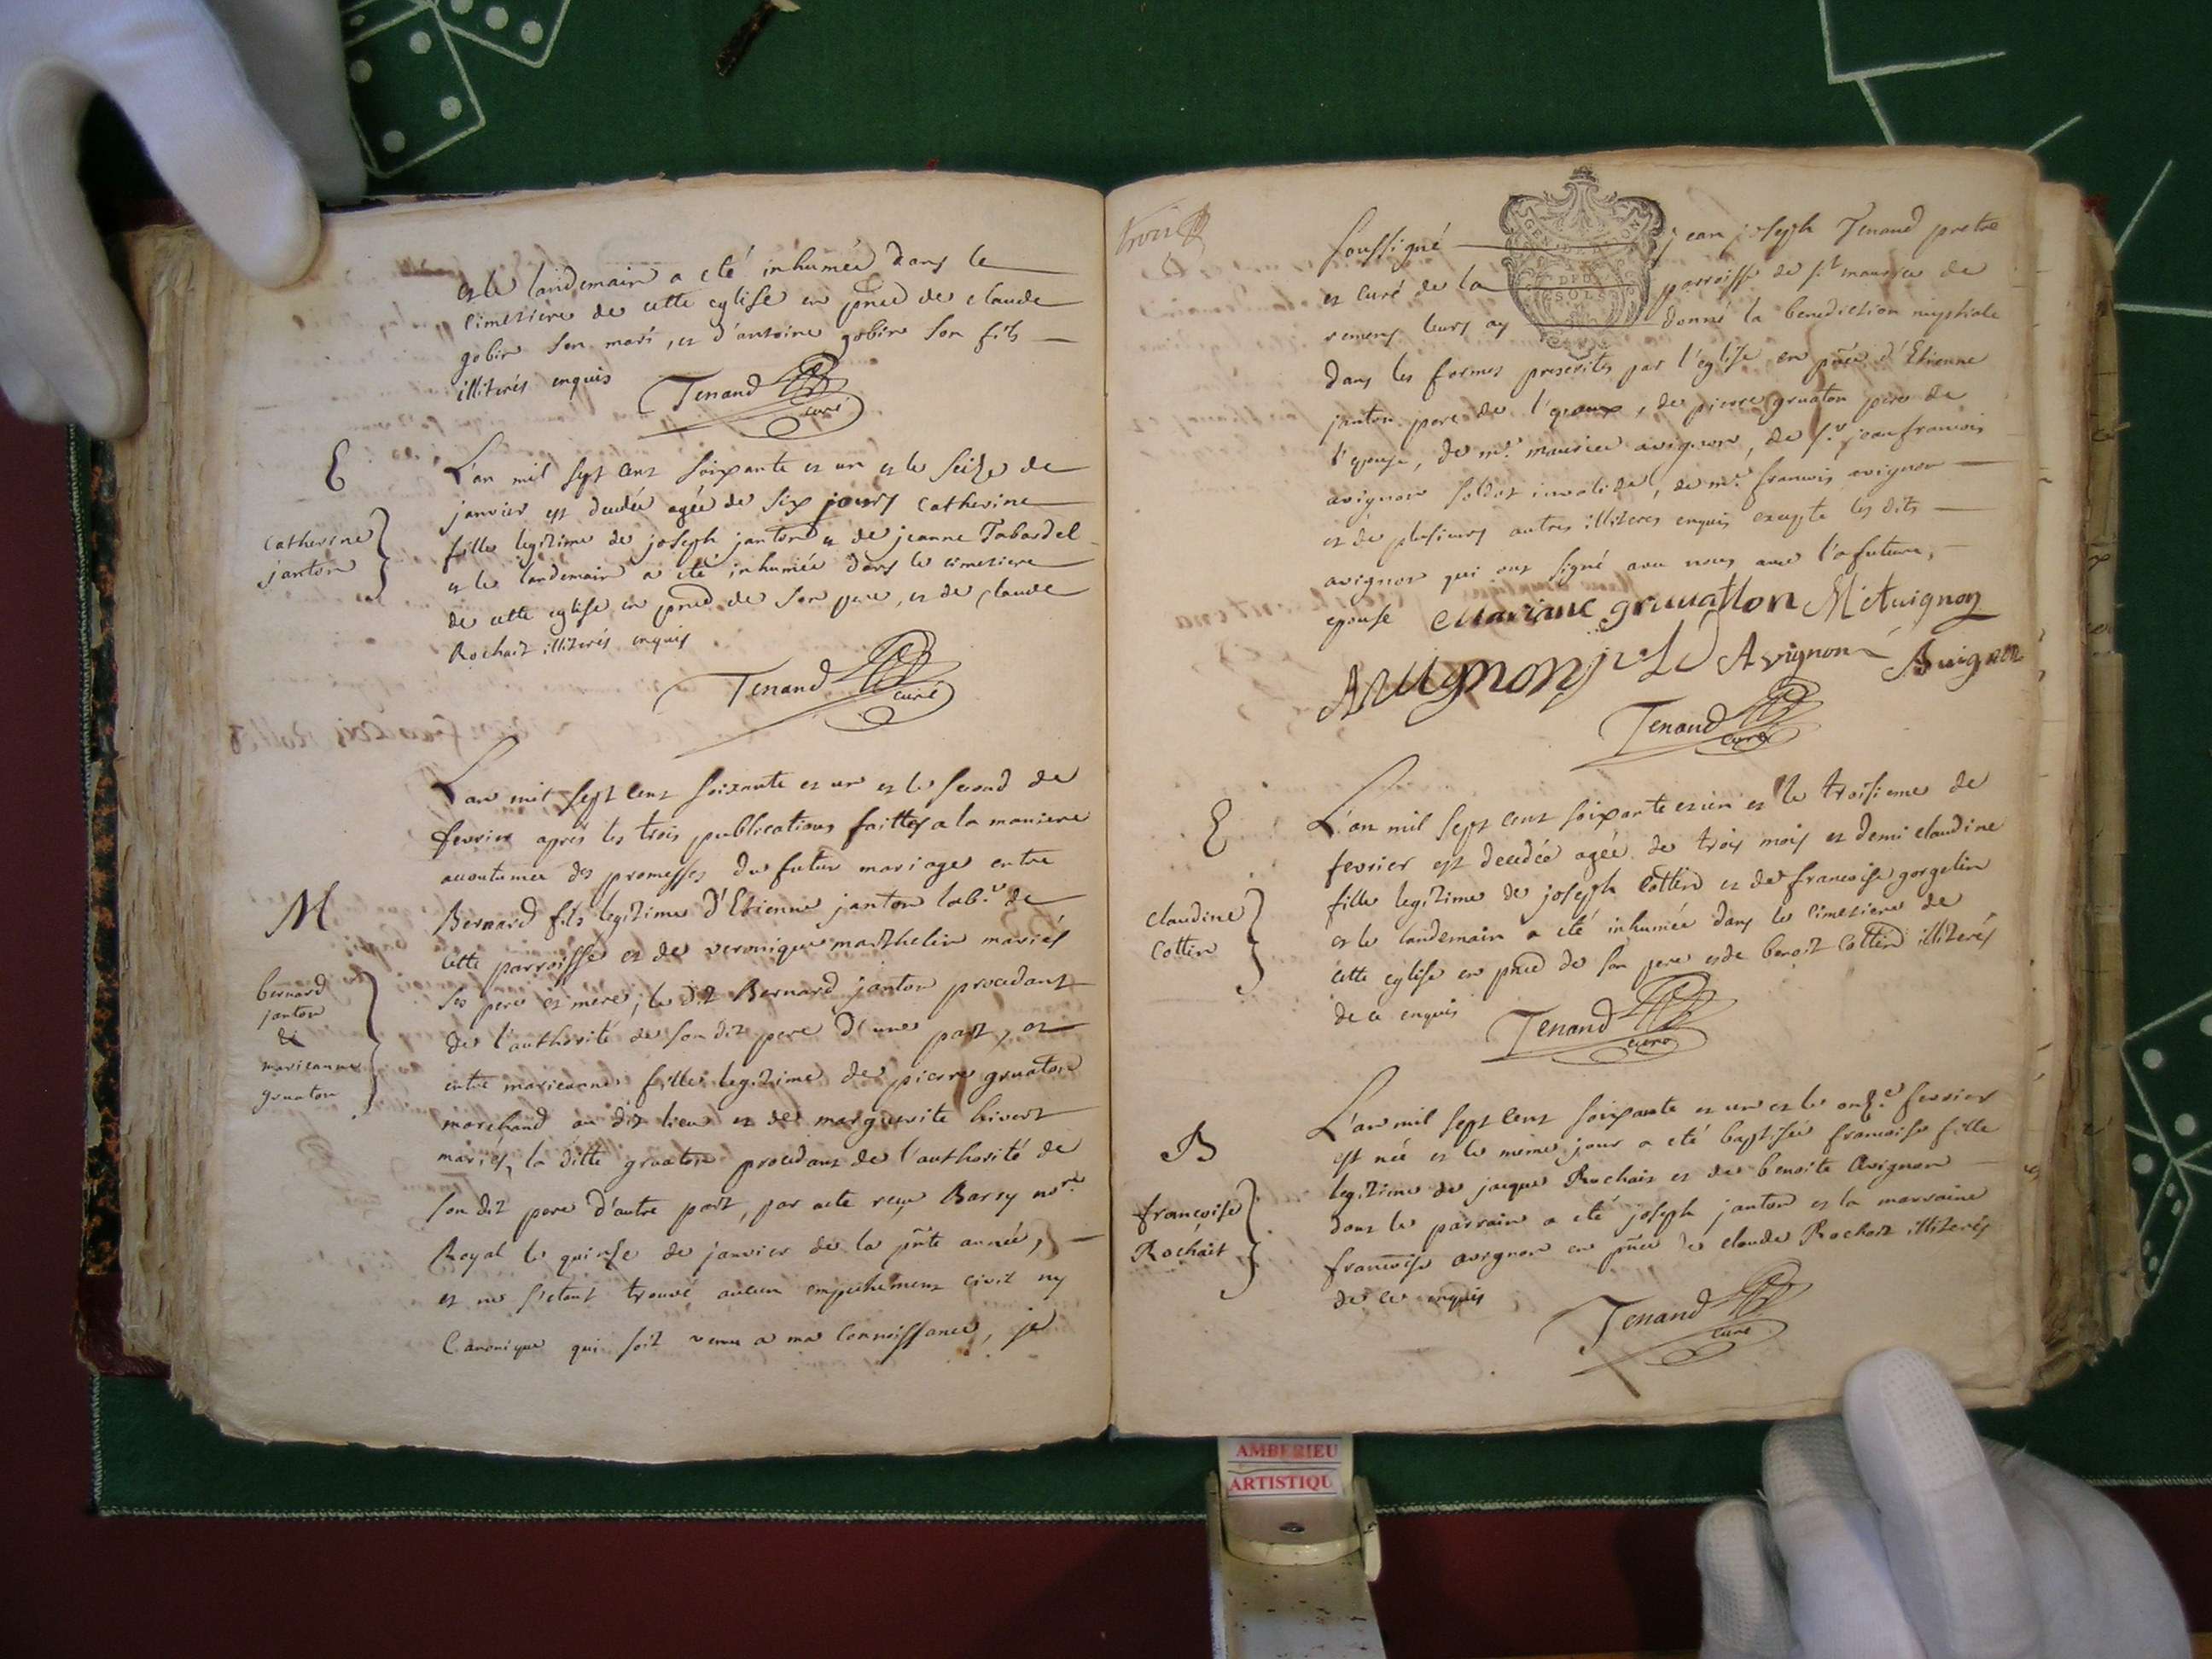 et le landemain a eté inhumée dans le
cimetiere de cette eglise en pnce de claude
gobin son mari, et d'antoine gobin son fils
illiterés enquis
Tenand
curé
E
L'an mil sept cent soixante et un et le seize de
janvier est decedée agée de six jours Catherine
fille legitime de joseph janton et de jeanne Tabardel
et le landemain a eté inhumée dans le cimetiere
de cette eglise en pnce de son pere, et de claude
Rochait illiterés enquis
Catherine
janton
Tenand
curé
L'an mil sept cent soixante et un et le second de
fevrier apres les trois publications faittes a la maniere
accoutumée des promesses du futur mariage entre
Bernard fils legitime d'Etienne janton labr. de
cette parroisse et de veronique marthelin mariés
ses pere et mere; le dit Bernard janton procedant
de l'authorité de son dit pere d'une part, et
entre marieanne fille legitime de pierre gruaton
marchand au dit lieu et de marguerite hivert
mariés, la ditte gruaton procedant de l'authorité de
son dit pere d'autre part, par acte reçu Barsy nore
Royal le quinse de janvier de la pnte année,
et ne s'etant trouvé aucun empechement civil ny
Canonique qui soit venu a ma connoissance, je
M
bernard
janton
&
marieanne
gruaton
trois
soussigné jean joseph Tenand pretre
et curé de la parroisse de st maurice de
remens leurs ay donné la benediction nuptiale
dans les formes prescrites par l'eglise en pnce d'Etienne
janton pere de l'epoux, de pierre gruaton pere de
l'epouse, de mr. maurice avignon, de sr. jean francois
avignon soldat invalide, de mr. francois avignon
et de plusieurs autres illiteres enquis excepté les dits
avignon qui ont signé avec nous avec la future,
epouse Mariane gruuatton M Avignon
Avignon j Avignon Avignon
Tenand
curé
E
L'an mil sept cent soixante et un et le troisieme de
fevrier est decedée agée de trois mois et demi claudine
fille legitime de joseph Cottin et de francoise gorgelin
et le landemain a eté inhumée dans le cimetiere de
cette eglise en pnce de son pere et de benoit Cottin illiterés
de ce enquis
claudine
Cottin
Tenand
curé
B
L'an mil sept cent soixante et un et le onze. fevrier
est née et le meme jour a eté baptisée francoise fille
legitime de jacque Rochait et de benoite Avignon
dont le parrain a eté joseph janton et la marraine
francoise avignon en pnce de claude Rochait illiterés
de ce enquis
francoise
Rochait
Tenand
curé
AMBERIEU
ARTISTIQU